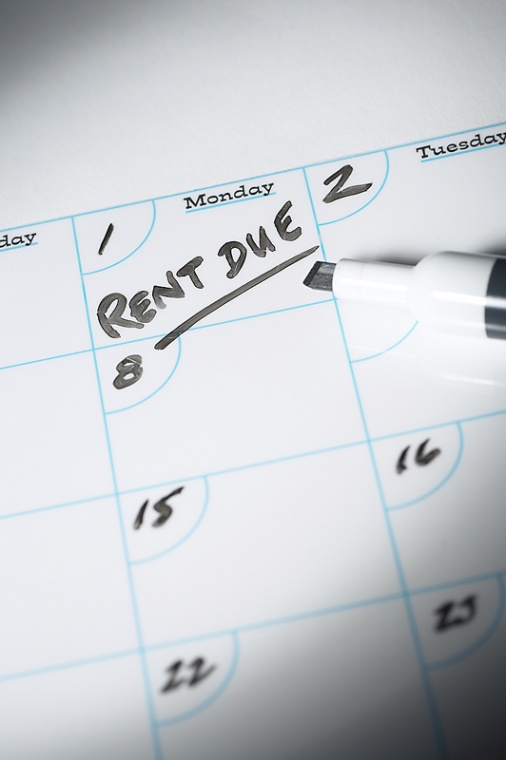 day
Monday
Tuesday
1
2
RENT DUE
8
15
16
22
23